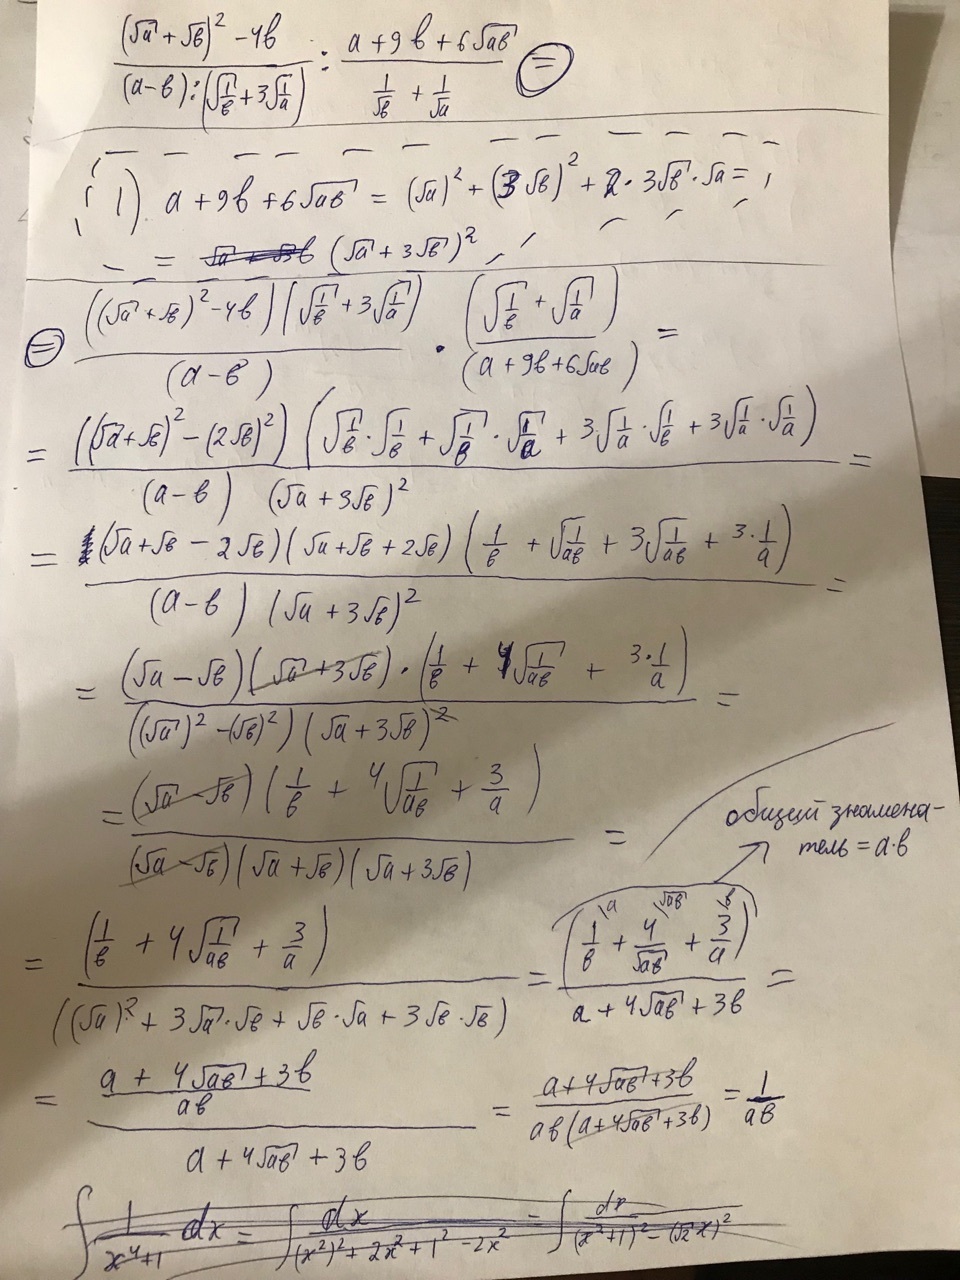 ((√a + √b)² - 4b) / ((a-b) : (√(1/b) + 3√(1/a))) : (a + 9b + 6√(ab)) / (1/√b + 1/√a) =
1) a + 9b + 6√(ab) = (√a)² + (3√b)² + 2 · 3√b · √a =
= (√a + 3√b)²
= ((√a + √b)² - 4b)(√(1/b) + 3√(1/a)) / (a-b) · (√(1/b) + √(1/a)) / (a + 9b + 6√(ab)) =
= ((√a + √b)² - (2√b)²) (√(1/b) · √(1/b) + √(1/b) · √(1/a) + 3√(1/a) · √(1/b) + 3√(1/a) · √(1/a)) / ((a-b) (√a + 3√b)²) =
= (√a + √b - 2√b)(√a + √b + 2√b) (1/b + √(1/ab) + 3√(1/ab) + 3 · 1/a) / ((a-b) (√a + 3√b)²) =
= (√a - √b)(√a + 3√b) · (1/b + 4√(1/ab) + 3 · 1/a) / (((√a)² - (√b)²)(√a + 3√b)²) =
= (√a - √b)(1/b + 4√(1/ab) + 3/a) / ((√a - √b)(√a + √b)(√a + 3√b)) =
общий знамена-
тель = a·b
= (1/b + 4√(1/ab) + 3/a) / ((√a)² + 3√a · √b + √b · √a + 3√b · √b) = (1/b \a + 4/√(ab) \√(ab) + 3/a \b) / (a + 4√(ab) + 3b) =
= ((a + 4√(ab) + 3b) / ab) / (a + 4√(ab) + 3b) = (a + 4√(ab) + 3b) / (ab(a + 4√(ab) + 3b)) = 1/ab
∫ 1/(x⁴+1) dx = ∫ dx/((x²)² + 2x² + 1² - 2x²) = ∫ dx/((x²+1)² - (√2x)²)